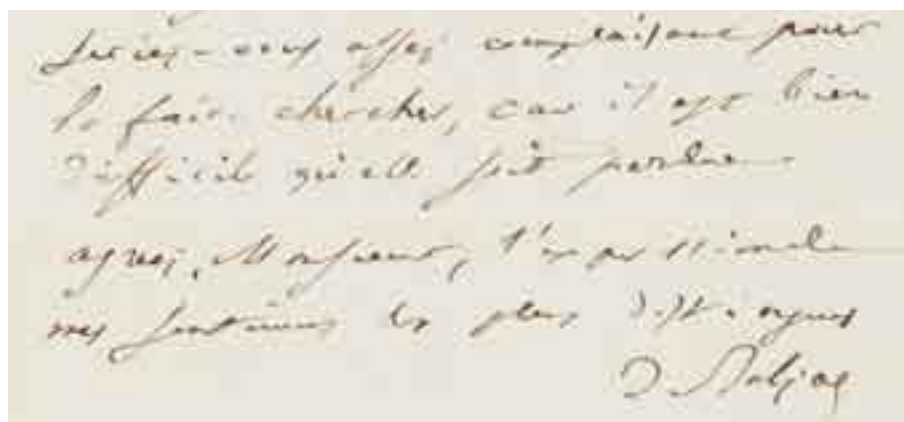 seriez-vous assez complaisant pour
la faire chercher, car il est bien
difficile qu'elle soit perdue
agréez, Monsieur, l'expression de
mes sentimens les plus distingués
De Balzac